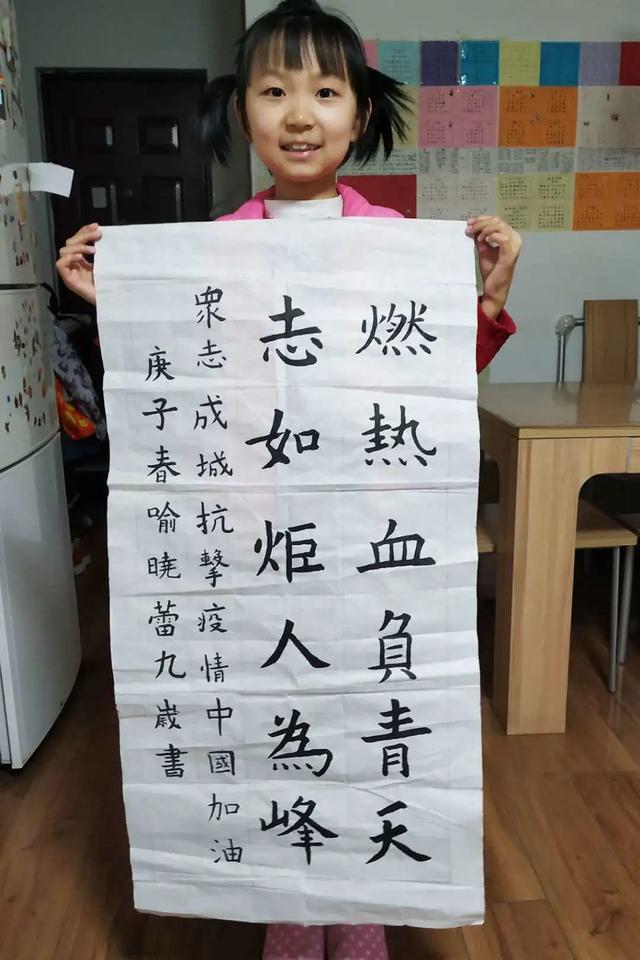 燃熱血負青天
志如炬人為峰
衆志成城抗擊疫情中國加油
庚子春喻曉蕾九歲書